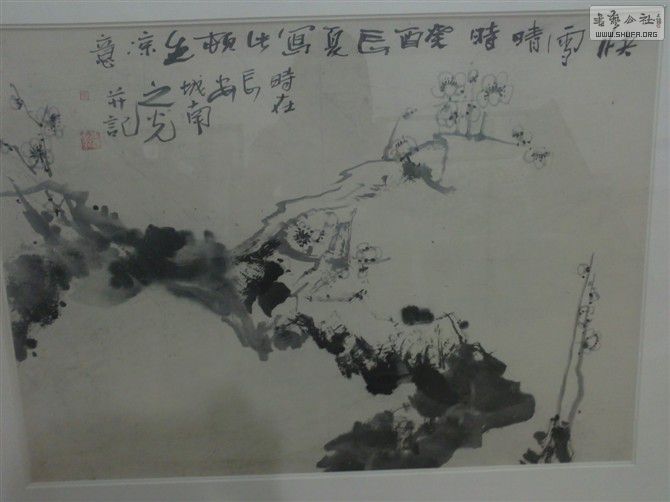 雪晴時癸酉長夏寫此頓生涼意
時在
長安
城南
之光
并記
公社
WWW.SHUFA.ORG